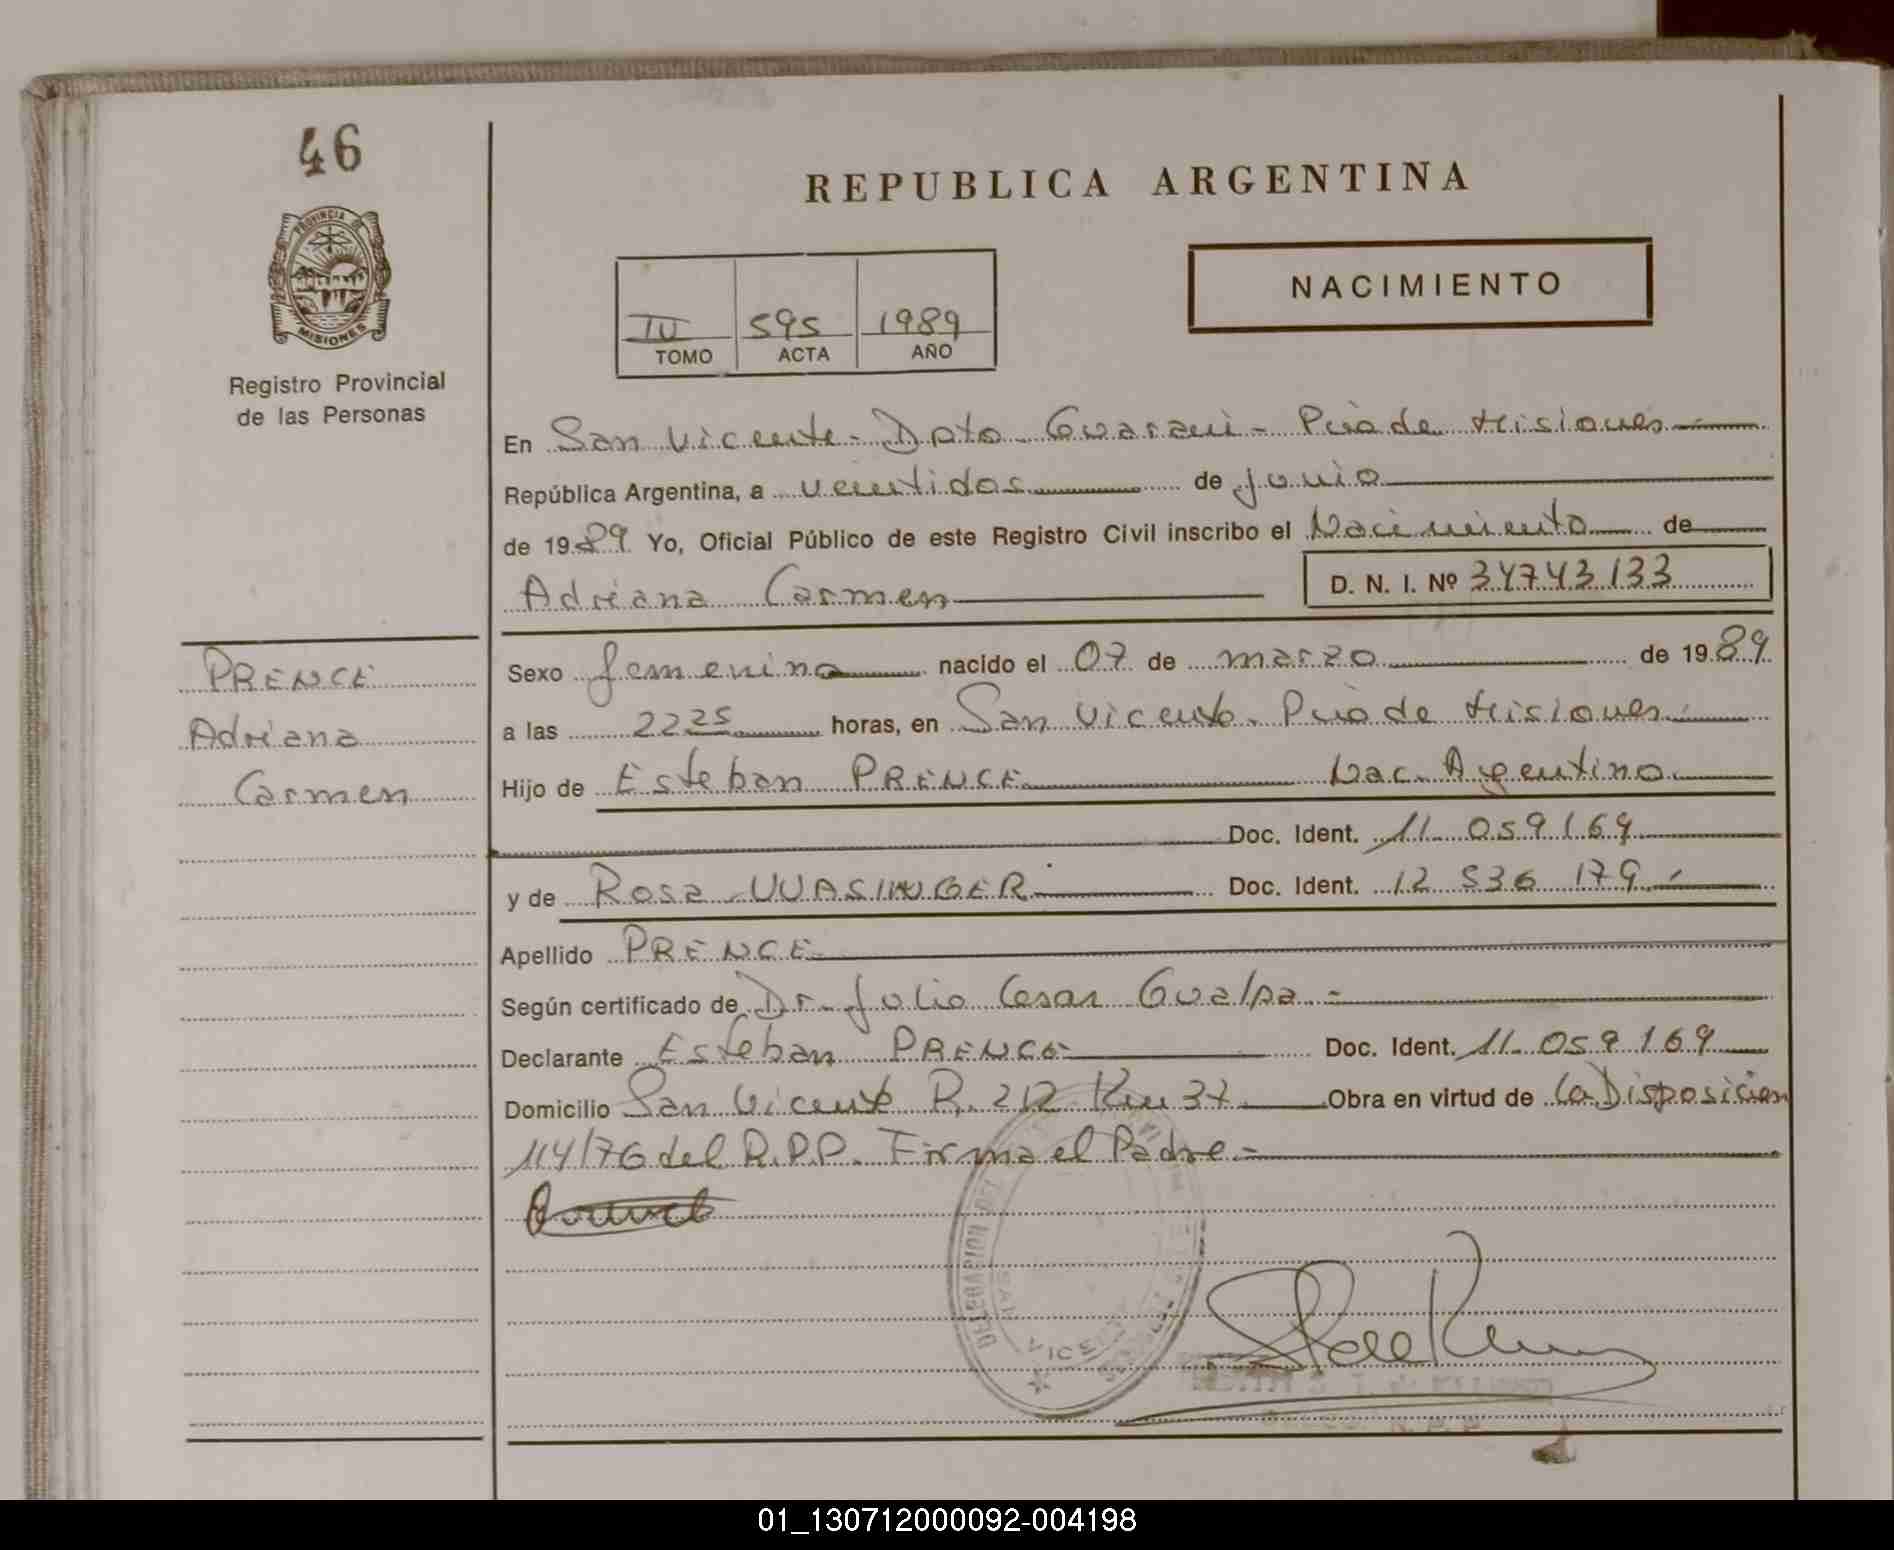 46
REPUBLICA ARGENTINA
PROVINCIA DE
MISIONES
NACIMIENTO
IV 595 1989
TOMO ACTA AÑO
Registro Provincial
de las Personas
En San Vicente - Dpto Guarani - Pcia de Misiones
República Argentina, a veintidos de junio
de 1989 Yo, Oficial Público de este Registro Civil inscribo el Nacimiento de
Adriana Carmen D. N. I. Nº 34743133
PRENCE
Adriana
Carmen
Sexo femenino nacido el 07 de marzo de 1989
a las 22 25 horas, en San Vicente - Pcia de Misiones
Hijo de Esteban PRENCE Nac. Argentino
Doc. Ident. 11 059 169
y de Rosa WASINGER Doc. Ident. 12 536 179
Apellido PRENCE
Según certificado de Dr. Julio Cesar Gualpa
Declarante Esteban PRENCE Doc. Ident. 11.059 169
Domicilio San Vicente R. 212 Km 37 Obra en virtud de la Disposicion
114/76 del R.P.P. Firma el Padre
01_130712000092-004198